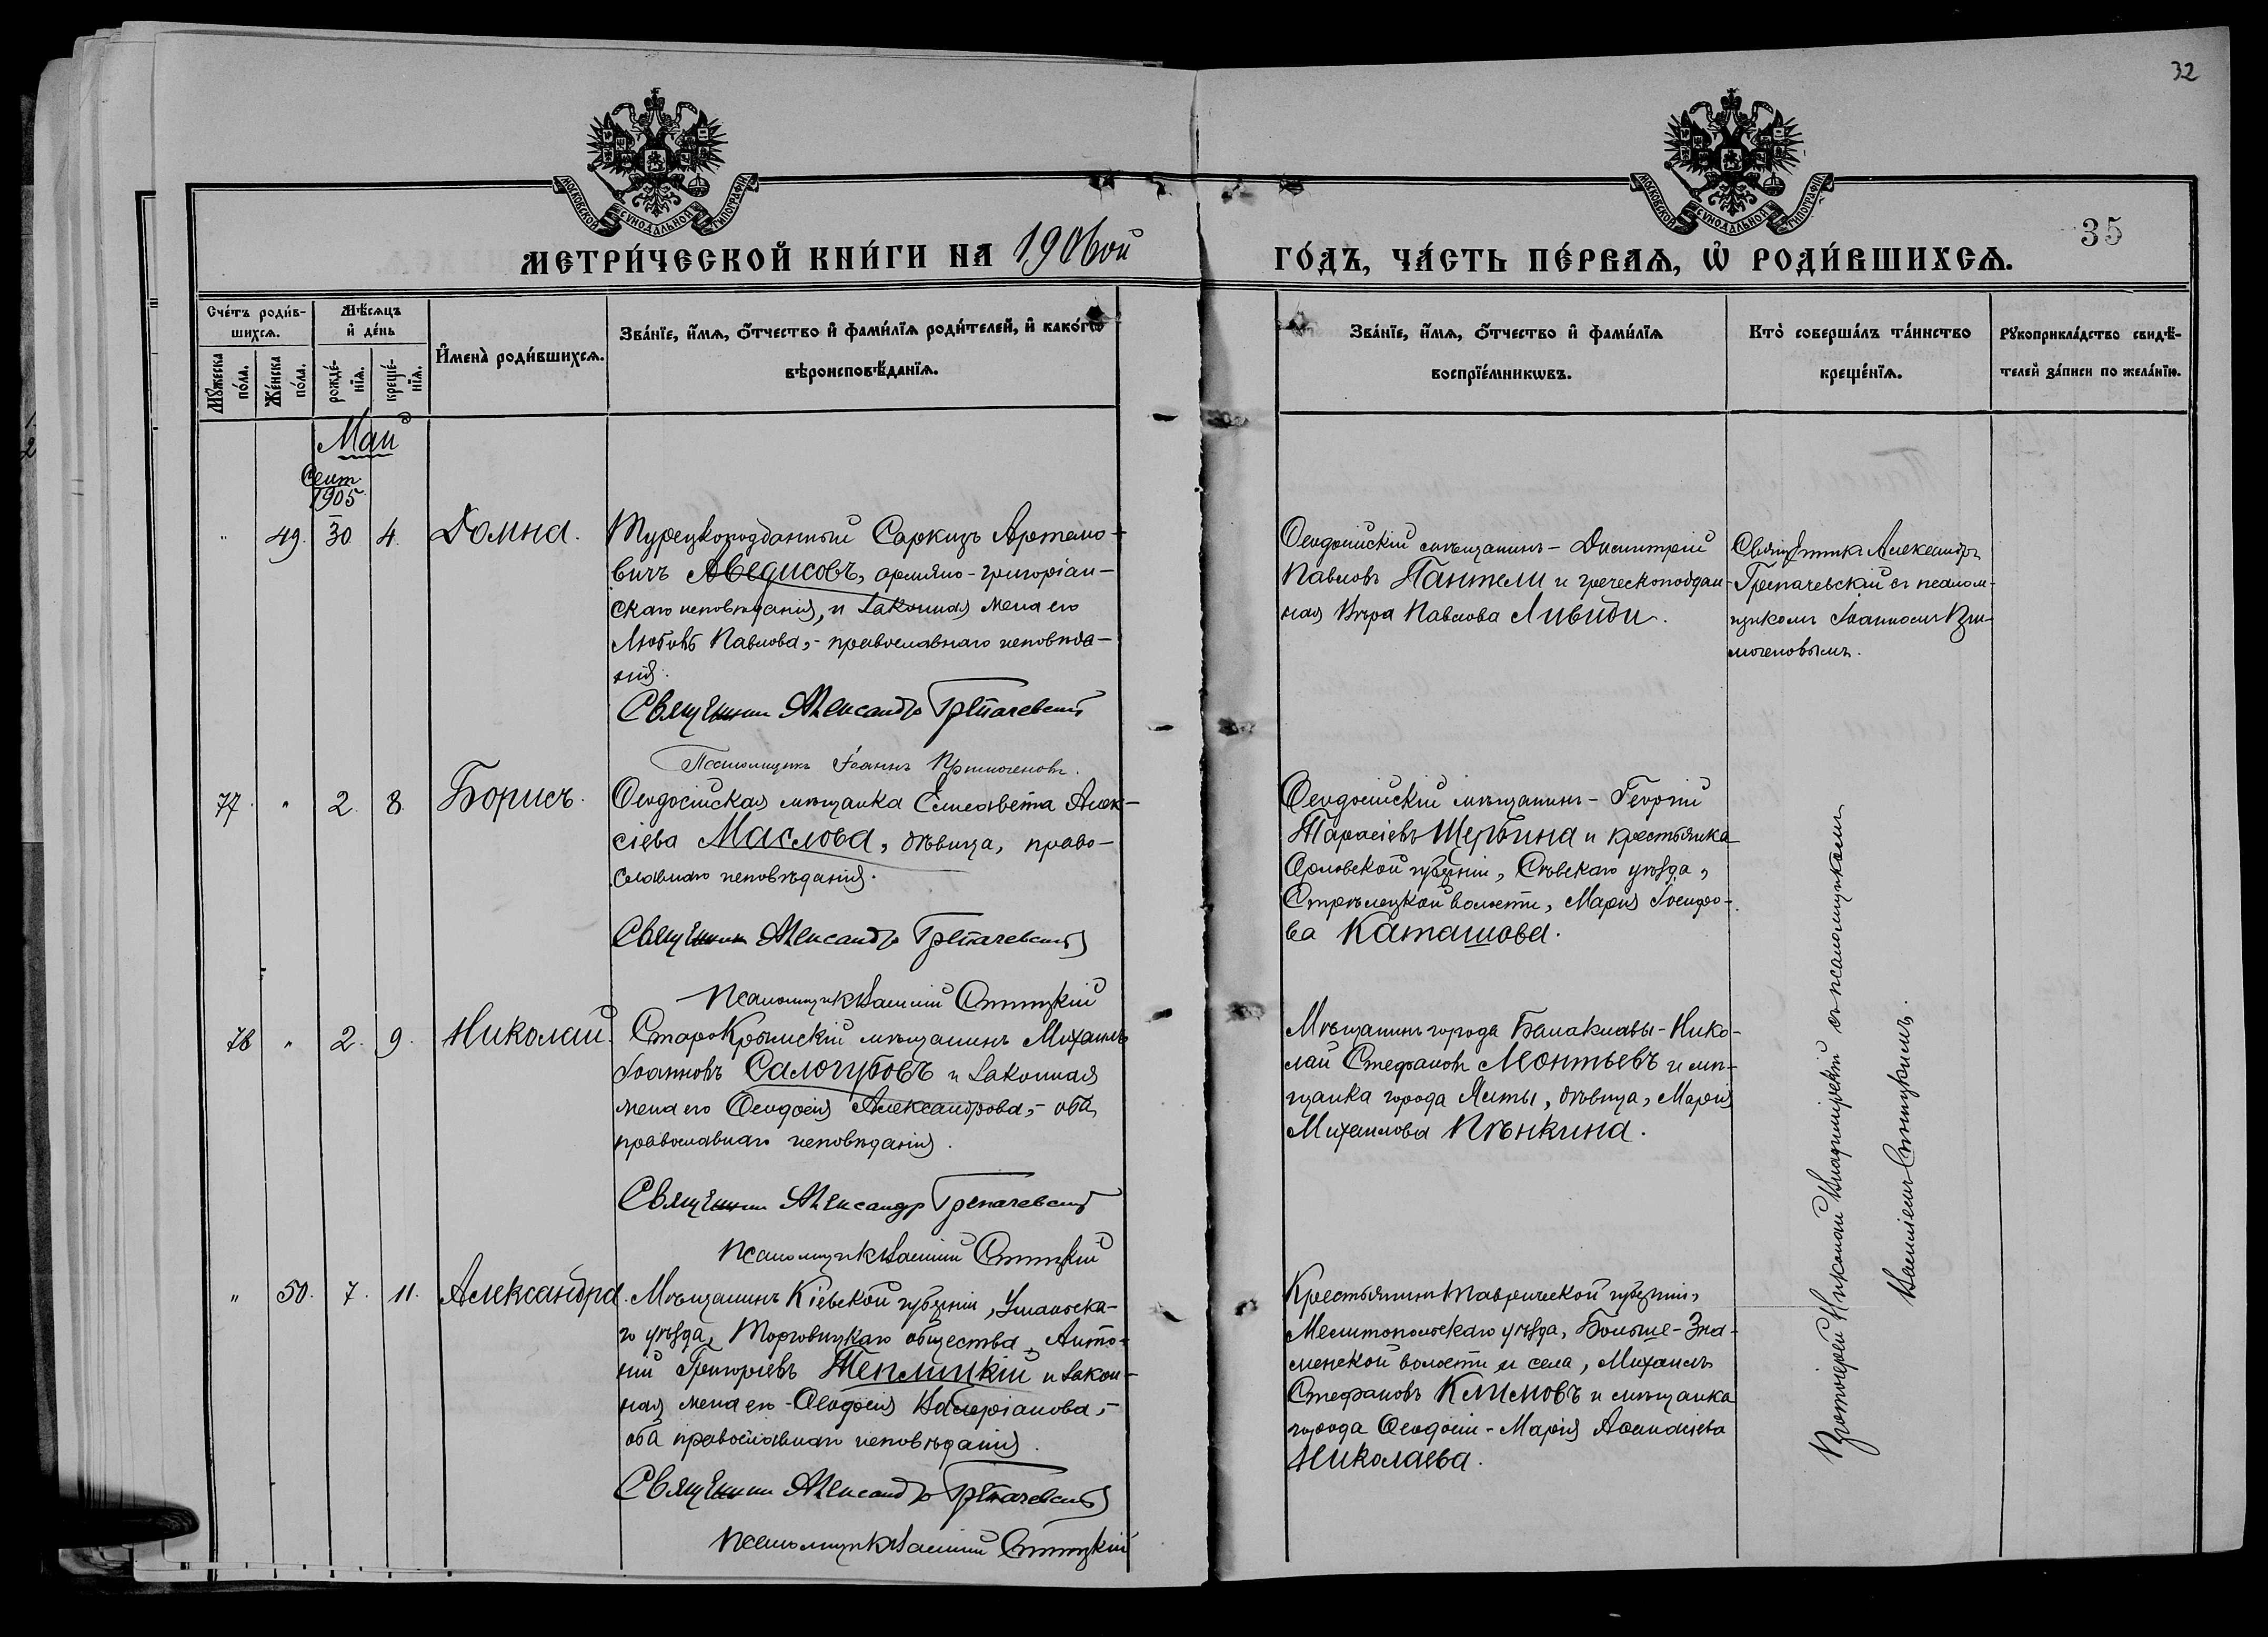 32
МОСКОВСКОЙ СѴНОДАЛЬНОЙ ТИПОГРАФІИ
МОСКОВСКОЙ СѴНОДАЛЬНОЙ ТИПОГРАФІИ
35
МЕТРИ́ЧЕСКОЙ КНИ́ГИ НА 1906ой
ГО́ДЪ, ЧА́СТЬ ПЕ́РВАѦ, Ѡ҆ РОДИ́ВШИХСѦ.
Сче́тъ роди́в-
шихсѧ.
Мѣ́сѧцъ
и҆ де́нь
Мꙋ́жеска по́ла.
Же́нска по́ла.
рожде́-нїѧ.
креще́-нїѧ.
И҆мена̀ роди́вшихсѧ.
Зва́нїе, и҆́мѧ, ѻ҆́тчество и҆ фами́лїѧ роди́телей, и҆ како́гѡ
вѣроисповѣ́данїѧ.
Зва́нїе, и҆́мѧ, ѻ҆́тчество и҆ фами́лїѧ
воспрїе́мникѡвъ.
Кто̀ соверша́лъ та́инство
креще́нїѧ.
Рꙋкоприкла́дство свидѣ́-
телей за́писи по жела́нїю.
Май
Сент.
1905
" 49. 30 4. Домна.
Турецкоподданный Саркизъ Артемо-
вичъ Аведисовъ, армяно-григоріан-
скаго исповѣданія, и законная жена его
Любовь Павлова,- православнаго исповѣда-
нія.
Священникъ Александръ Грепачевскій
Псаломщикъ Іоаннъ Примогеновъ.
Ѳеодосійскій мѣщанинъ - Димитрій
Павловъ Пантели и греческоподдан-
ная Вѣра Павлова Ливиди.
Священникъ Александръ
Грепачевскій съ псалом-
щикомъ Іоанномъ При-
могеновымъ.
77. " 2. 8. Борисъ.
Ѳеодосійская мѣщанка Елисавета Алек-
сіева Маслова, дѣвица, право-
славнаго исповѣданія.
Священникъ Александръ Грепачевскій
Псаломщикъ Василій Стицкій
Ѳеодосійскій мѣщанинъ - Георгій
Тарасіевъ Щербина и крестьянка
Орловской губерніи, Сѣвскаго уѣзда,
Стрѣлецкой волости, Марія Іосифо-
ва Каташова.
78 " 2. 9. Николай.
Старокрымскій мѣщанинъ Михаилъ
Іоанновъ Салогубовъ и законная
жена его Ѳеодосія Александрова,- оба
православнаго исповѣданія.
Священникъ Александр Грепачевскій
Псаломщикъ Василій Стицкій
Мѣщанинъ города Балаклавы - Нико-
лай Стефановъ Леонтьевъ и мѣ-
щанка города Ялты, дѣвица, Марія
Михаилова Пѣнкина.
" 50. 7. 11. Александра.
Мѣщанинъ Кіевской губерніи, Уманска-
го уѣзда, Торговицкаго общества, Анто-
ній Григоріевъ Теплицкій и закон-
ная жена его - Ѳеодосія Валеріанова,-
оба православнаго исповѣданія.
Священникъ Александръ Грепачевскій
Псаломщикъ Василій Стицкій
Крестьянинъ Таврической губерніи,
Мелитопольскаго уѣзда, Больше-Зна-
менской волости и села, Михаилъ
Стефановъ Климовъ и мѣщанка
города Ѳеодосіи - Марія Аѳанасіева
Николаева.
Протоіерей Николай Владимірскій съ псаломщикомъ
Василіемъ Стицкимъ.